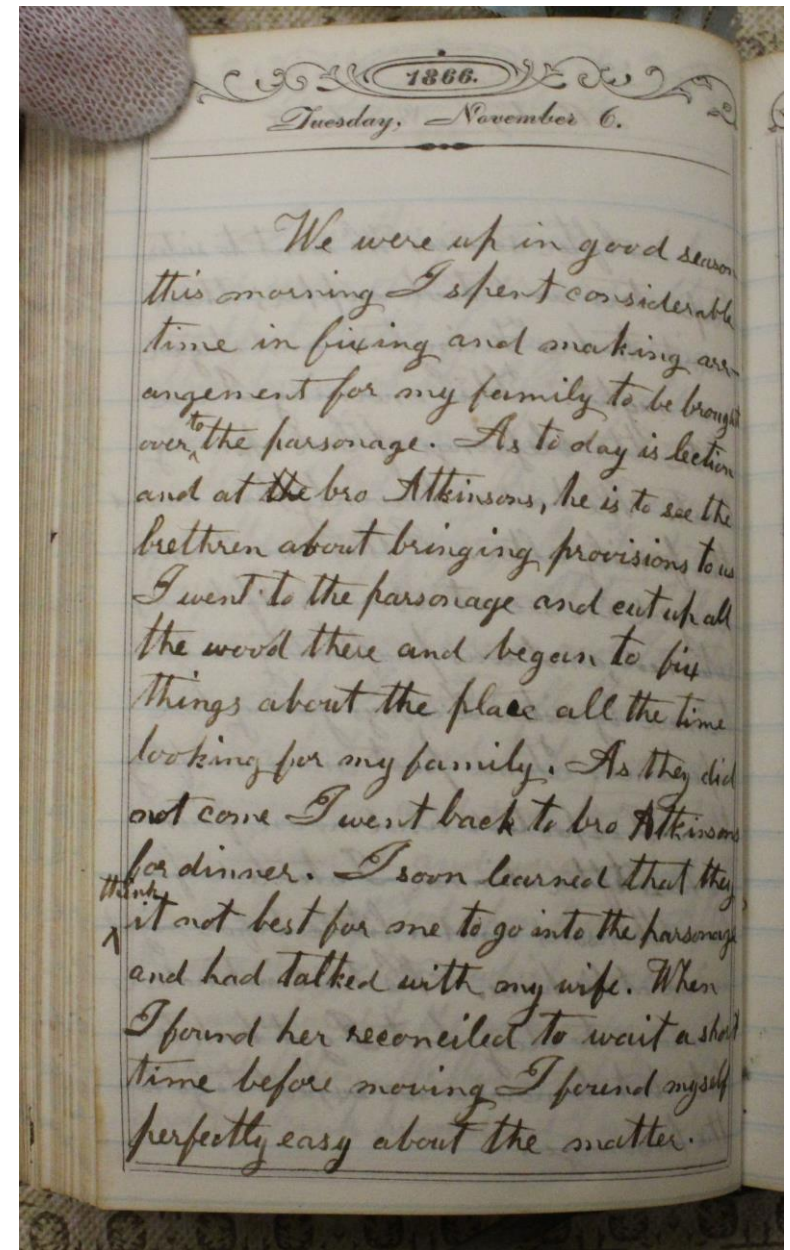 1866.
Tuesday, November 6.
We were up in good season
this morning I spent considerable
time in fixing and making arr-
angement for my family to be brought
over to the parsonage. As to day is lection
and at the bro Atkinsons, he is to see the
brethren about bringing provisions to us
I went to the parsonage and cut up all
the wood there and began to fix
things about the place all the time
looking for my family. As they did
not come I went back to bro Atkinsons
for dinner. I soon learned that they
think it not best for me to go into the parsonage
and had talked with my wife. When
I found her reconciled to wait a short
time before moving I found myself
perfectly easy about the matter.